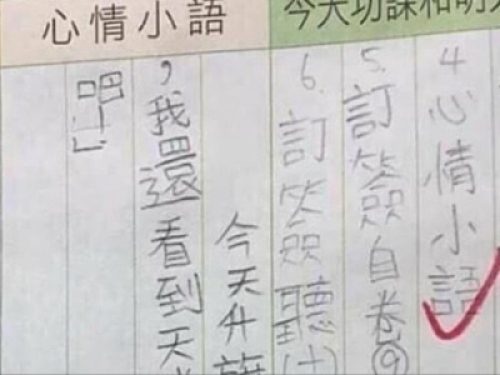 今天功課和明
4.心情小語
5.訂簽自卷⑨
6.訂簽聽(十
心情小語
今天升旗
,我還看到天
吧!」